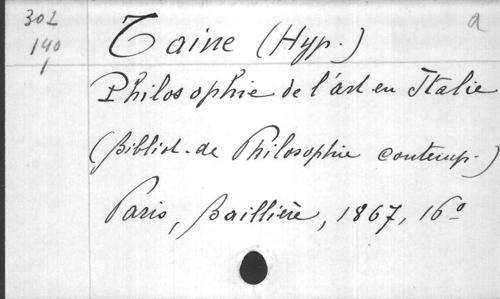 302 Taine (Hyp.) a
140
1
Philosophie de l'art en Italie
(Bibliot. de Philosophie contemp.)
Paris, Baillière, 1867, 16º